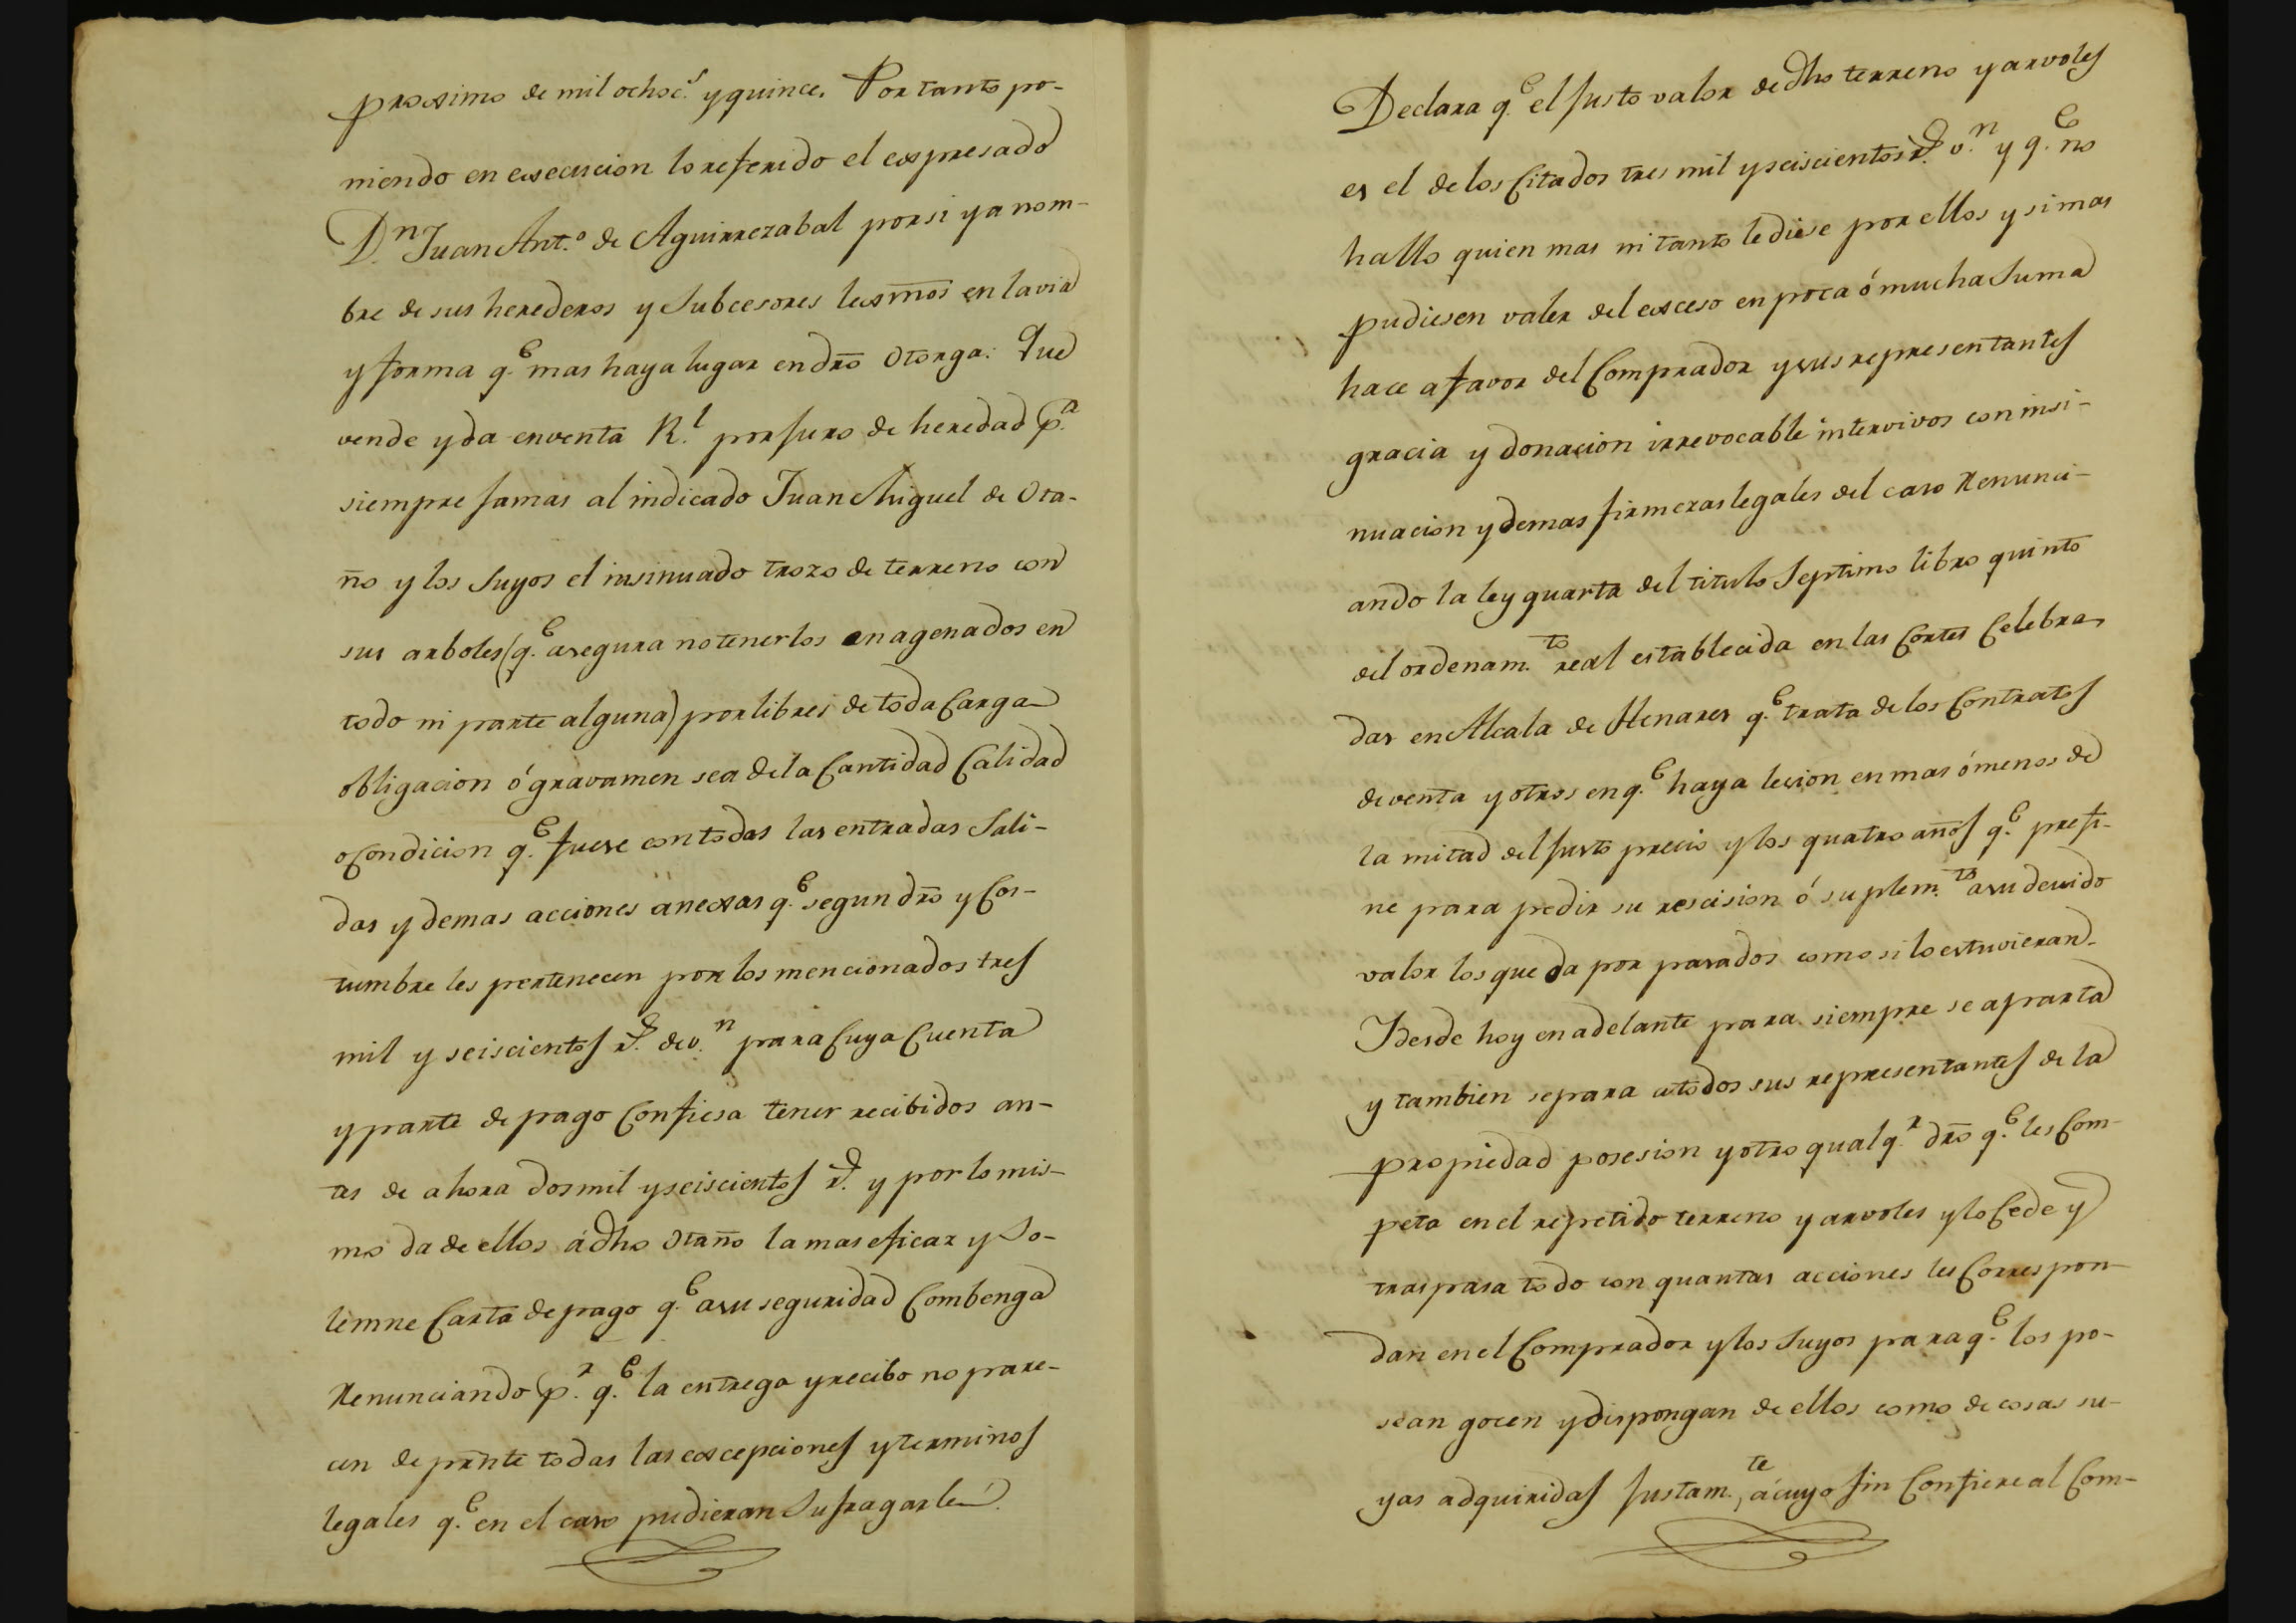 proximo de mil ochoc.s y quince. Por tanto po-
niendo en execucion lo referido el expresado
D.n Juan Ant.o de Aguirrezabal por si y a nom-
bre de sus herederos y Subcesores lexmos en la via
y forma q.e mas haya lugar en dro Otorga: Que
vende y da en venta R.l por juro de heredad p.a
siempre jamas al indicado Juan Miguel de Ota-
ño y los Suyos el insinuado trozo de terreno con
sus arboles (q.e asegura no tenerlos enagenados en
todo ni parte alguna) por libres de toda Carga
obligacion ó gravamen sea de la Cantidad Calidad
o Condicion q.e fuese con todas las entradas Sali-
das y demas acciones anexas q.e segun dro y Cos-
tumbre les pertenecen por los mencionados tres
mil y seiscientos r.s de v.n para Cuya Cuenta
y parte de pago Confiesa tener recibidos an-
tes de ahora dos mil y seiscientos r.s y por lo mis-
mo da de ellos á dho Otaño la mas eficaz y So-
lemne Carta de pago q.e a su seguridad Combenga
Renunciando p.r q.e la entrega y recibo no pare-
cen de prnte todas las excepciones y terminos
legales q.e en el caso pudieran Sufragarle.
Declara q.e el justo valor de dho terreno y arvoles
es el de los Citados tres mil y seiscientos r.s v.n y q.e no
hallo quien mas ni tanto le diese por ellos y si mas
pudiesen valer del exceso en poca ó mucha Suma
hace a favor del Comprador y sus representantes
gracia y donacion irrevocable intervivos con insi-
nuacion y demas firmezas legales del caso Renunci-
ando la ley quarta del titulo Septimo libro quinto
del ordenam.to real establecida en las Cortes Celebra-
das en Alcala de Henares q.e trata de los Contratos
de venta y otros en q.e haya lesion en mas ó menos de
la mitad del justo precio y los quatro años q.e prefi-
ne para pedir su rescision ó suplem.to a su devido
valor los que da por pasados como si lo estuvieran.
Y desde hoy en adelante para siempre se aparta
y tambien separa a todos sus representantes de la
propiedad posesion y otro qualq.r dro q.e les Com-
peta en el repetido terreno y arvoles y lo Cede y
traspasa todo con quantas acciones les Correspon-
dan en el Comprador y los Suyos para q.e los po-
sean gocen y dispongan de ellos como de cosas su-
yas adquiridas justam.te, á cuyo fin Confiere al Com-